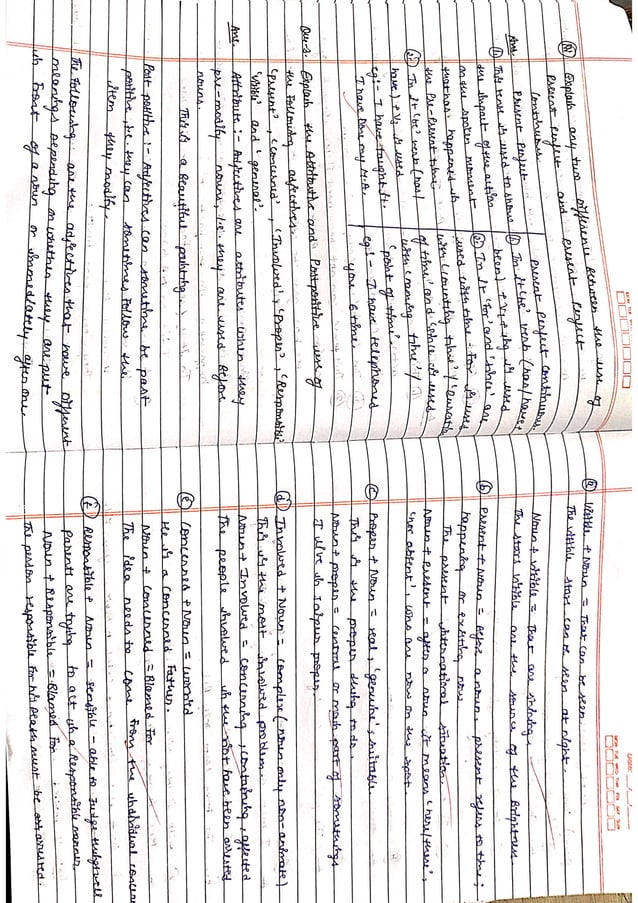 (IV) Explain any two difference between the use of
Present perfect and present perfect
Continuous.
Ans. Present perfect
① This tense is used to show
the impact of the action
on the spoken moment
that has happened in
the Pre-Present time
② In it 'be' verb (has/
have) + V₃ is used
eg:- I have taught it.
I have done my M.A.
Present perfect continuous.
① In it 'be' verb (has/have+
been) + V₁ + ing is used
② In it 'for' and 'since' are
used with time. For is used
with 'counting time'/'duration
of time' and 'since is used
with 'coming time'/
'point of time'.
eg:- I have telephoned
you 6 time.
Que-2. Explain the Attributive and Postpositive use of
the following adjectives.
'present', 'concerned', 'Involved', 'Proper', 'Responsible'
'visible' and 'general'.
Ans. Attribute :- Adjectives are attributes when they
pre-modify nouns, i.e. they are used Before
nouns.
This is a Beautiful painting.
Post positive :- Adjectives can sometime be post
positive, i.e. they can sometimes follow the
item they modify.
The Following are the adjectives that have different
meanings depending on whether they are put
in Front of a noun or immediately after one.
ⓐ Visible + Noun = That can be seen
The visible stars can be seen at night.
Noun + visible = That are shining.
The stars visible are the source of the Brightness
ⓑ Present + Noun = Before a noun, present refers to time;
happening or existing now
The present international situation.
Noun + present = after a noun it means 'here/there',
'not absent', who are now on the spot
ⓒ Proper + Noun = real, 'genuine', suitable
This is the proper thing to do.
Noun + proper = central or main part of something
I live in Jaipur proper.
ⓓ Involved + Noun = complex (noun only non-animate)
This is the most involved problem.
Noun + Involved = concerning, containing, affected
The people involved in the riot have been arrested
ⓔ Concerned + Noun = worried
He is a concerned Father.
Noun + Concerned = Blamed For
The idea needs to come From the individual concer
ⓕ Responsible + Noun = sensible - able to Judge things well
Parents are trying to act in a Responsible manner
Noun + Responsible = Blamed For
The person responsible for his death must be arrested.